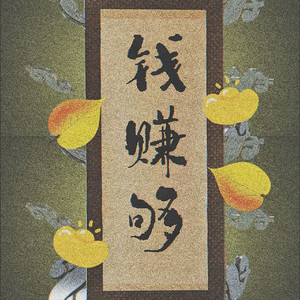 钱赚够